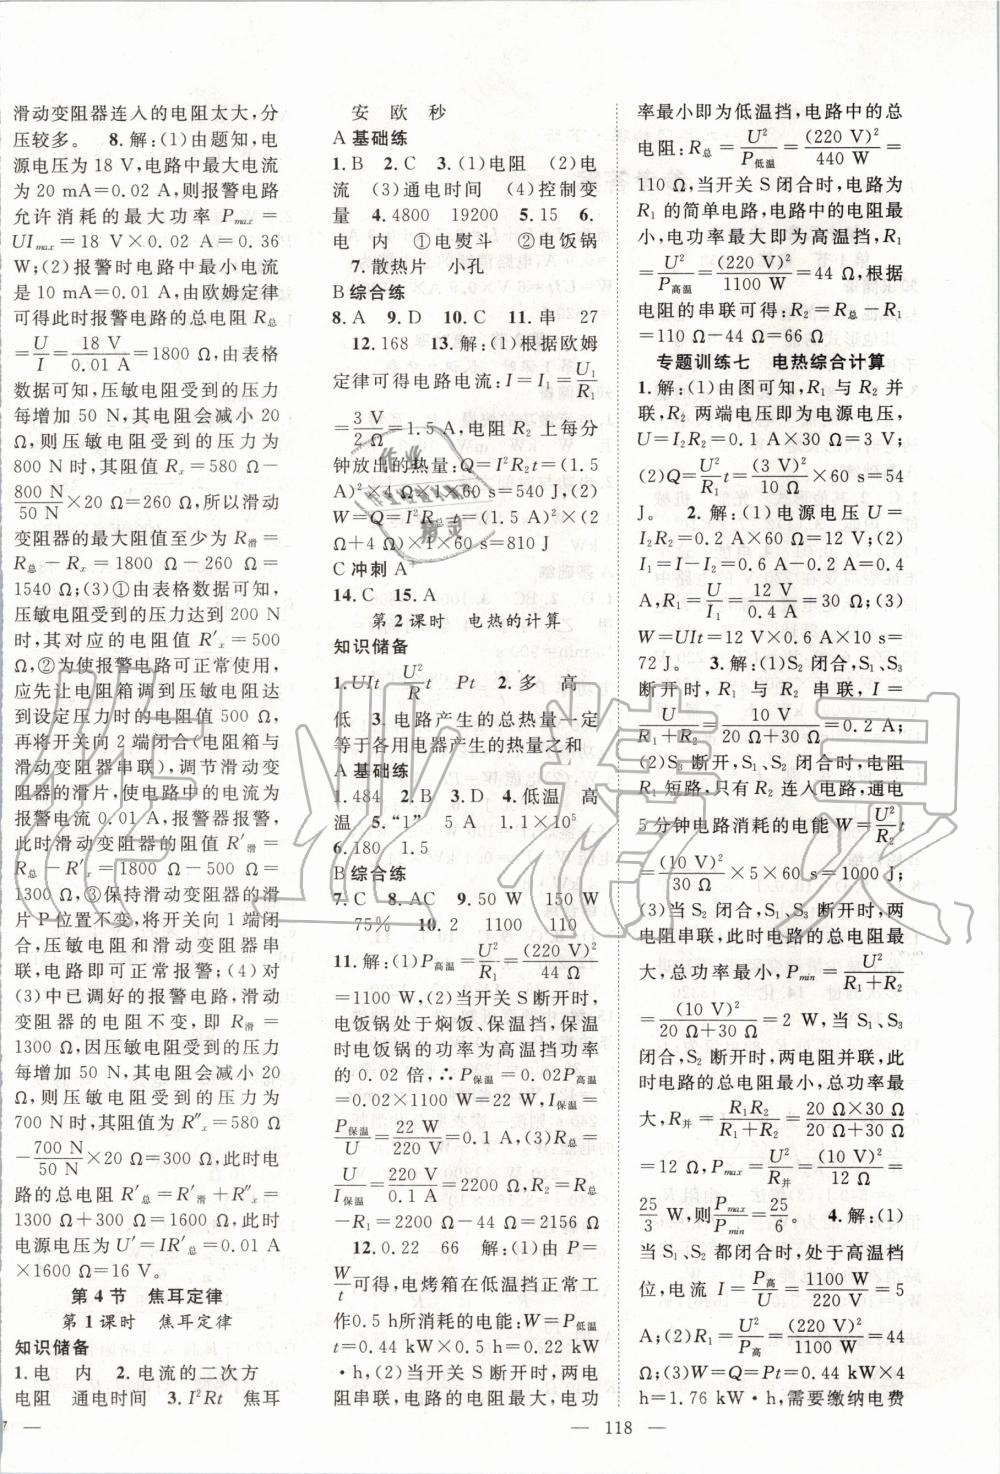 滑动变阻器连入的电阻太大，分
压较多。 8.解：(1)由题知，电
源电压为 18 V，电路中最大电流
为 20 mA＝0.02 A，则报警电路
允许消耗的最大功率 Pmax ＝
UImax＝18 V×0.02 A＝0.36
W；(2)报警时电路中最小电流
是 10 mA＝0.01 A，由欧姆定律
可得此时报警电路的总电阻 R总
＝U/I＝18 V/0.01 A＝1800 Ω，由表格
数据可知，压敏电阻受到的压力
每增加 50 N，其电阻会减小 20
Ω，则压敏电阻受到的压力为
800 N时，其阻值 Rx＝580 Ω－
800 N/50 N×20 Ω＝260 Ω，所以滑动
变阻器的最大阻值至少为 R滑＝
R总－Rx＝1800 Ω－260 Ω＝
1540 Ω；(3)①由表格数据可知，
压敏电阻受到的压力达到 200 N
时，其对应的电阻值 R′x＝500
Ω，②为使报警电路可正常使用，
应先让电阻箱调到压敏电阻达
到设定压力时的电阻值 500 Ω，
再将开关向 2 端闭合(电阻箱与
滑动变阻器串联)，调节滑动变阻
器的滑片，使电路中的电流为
报警电流 0.01 A，报警器报警，
此时滑动变阻器的阻值 R′滑＝
R总－R′x＝1800 Ω－500 Ω＝
1300 Ω，③保持滑动变阻器的滑
片 P位置不变，将开关向 1 端闭
合，压敏电阻和滑动变阻器串
联，电路可正常报警；(4)对
(3)中已调好的报警电路，滑动
变阻器的电阻不变，即 R滑＝
1300 Ω，因压敏电阻受到的压力
每增加 50 N，其电阻会减小 20
Ω，则压敏电阻受到的压力为
700 N时，其阻值为 R″x＝580 Ω
－700 N/50 N×20 Ω＝300 Ω，此时电
路的总电阻 R′总＝R′滑＋R″x＝
1300 Ω＋300 Ω＝1600 Ω，此时
电源电压为 U′＝IR′总＝0.01 A
×1600 Ω＝16 V。
第 4 节 焦耳定律
第 1 课时 焦耳定律
知识储备
1.电 内 2.电流的二次方
电阻 通电时间 3.I²Rt 焦耳
安 欧 秒
A 基础练
1.B 2.C 3.(1)电阻 (2)电
流 (3)通电时间 (4)控制变
量 4.4800 19200 5.15 6.
电 内 ①电熨斗 ②电饭锅
7.散热片 小孔
B 综合练
8.A 9.D 10.C 11.串 27
12.168 13.解：(1)根据欧姆
定律可得电路电流：I＝I₁＝U₁/R₁
＝3 V/2 Ω＝1.5 A，电阻 R₂ 上每分
钟放出的热量：Q＝I²R₂t＝(1.5
A)²×4 Ω×1×60 s＝540 J，(2)
W＝Q＝I²R总t＝(1.5 A)²×(2
Ω＋4 Ω)×1×60 s＝810 J
C 冲刺 A⁺
14.C 15.A
第 2 课时 电热的计算
知识储备
1.UIt U²/R t Pt 2.多 高
低 3.电路产生的总热量一定
等于各用电器产生的热量之和
A 基础练
1.484 2.B 3.D 4.低温 高
温 5.“1” 5 A 1.1×10⁵
6.180 1.5
B 综合练
7.C 8.AC 9.50 W 150 W
75% 10.2 1100 110
11.解：(1)P高温＝U²/R₁＝(220 V)²/44 Ω
＝1100 W，(2)当开关 S断开时，
电饭锅处于焖饭、保温挡，保温
时电饭锅的功率为高温挡功率
的 0.02 倍，∴P保温＝0.02P高温
＝0.02×1100 W＝22 W，I保温＝
P保温/U＝22 W/220 V＝0.1 A，(3)R总
＝U/I保温＝220 V/0.1 A＝2200 Ω，R₂＝R总
－R₁＝2200 Ω－44 Ω＝2156 Ω
12.0.22 66 解：(1)由 P＝
W/t可得，电烤箱在低温挡正常工
作0.5 h所消耗的电能：W＝P低温
t＝0.44 kW×0.5 h＝0.22 kW
·h，(2)当开关 S断开时，两电
阻串联，电路的电阻最大，电功
率最小即为低温挡，电路中的总
电阻：R总＝U²/P低温＝(220 V)²/440 W＝
110 Ω，当开关 S闭合时，电路为
R₁ 的简单电路，电路中的电阻最
小，电功率最大即为高温挡，R₁
＝U²/P高温＝(220 V)²/1100 W＝44 Ω，根据
电阻的串联可得：R₂＝R总－R₁
＝110 Ω－44 Ω＝66 Ω
专题训练七 电热综合计算
1.解：(1)由图可知，R₁ 与 R₂ 并
联，R₂ 两端电压即为电源电压，
U＝I₂R₂＝0.1 A×30 Ω＝3 V；
(2)Q＝U²/R₁ t＝(3 V)²/10 Ω×60 s＝54
J。 2.解：(1)电源电压 U＝
I₂R₂＝0.2 A×60 Ω＝12 V；(2)
I₁＝I－I₂＝0.6 A－0.2 A＝0.4
A，R₁＝U/I₁＝12 V/0.4 A＝30 Ω；(3)
W＝UIt＝12 V×0.6 A×10 s＝
72 J。 3.解：(1)S₂ 闭合，S₁、S₃
断开时，R₁ 与 R₂ 串联，I＝
U/R₁＋R₂＝10 V/20 Ω＋30 Ω＝0.2 A；
(2)S₃ 闭合，S₁、S₂ 断开时，电阻
R₁ 短路，只有 R₂ 连入电路，通电
5 分钟电路消耗的电能 W＝U²/R₂ t
＝(10 V)²/30 Ω×5×60 s＝1000 J；
(3)当 S₂ 闭合，S₁、S₃ 断开时，两
电阻串联，此时电路的总电阻最
大，总功率最小，Pmin＝U²/R₁＋R₂
＝(10 V)²/20 Ω＋30 Ω＝2 W，当 S₁、S₃
闭合，S₂ 断开时，两电阻并联，此
时电路的总电阻最小，总功率最
大，R并＝R₁R₂/R₁＋R₂＝20 Ω×30 Ω/20 Ω＋30 Ω
＝12 Ω，Pmax＝U²/R并＝(10 V)²/12 Ω＝
25/3 W，则Pmax/Pmin＝25/6。 4.解：(1)
当 S、S₁ 都闭合时，处于高温档
位，电流 I＝P高/U＝1100 W/220 V＝5
A；(2)R₁＝U²/P高＝(220 V)²/1100 W＝44
Ω；(3)W＝Q＝Pt＝0.44 kW×4
h＝1.76 kW·h，需要缴纳电费
— 118 —
作业精灵